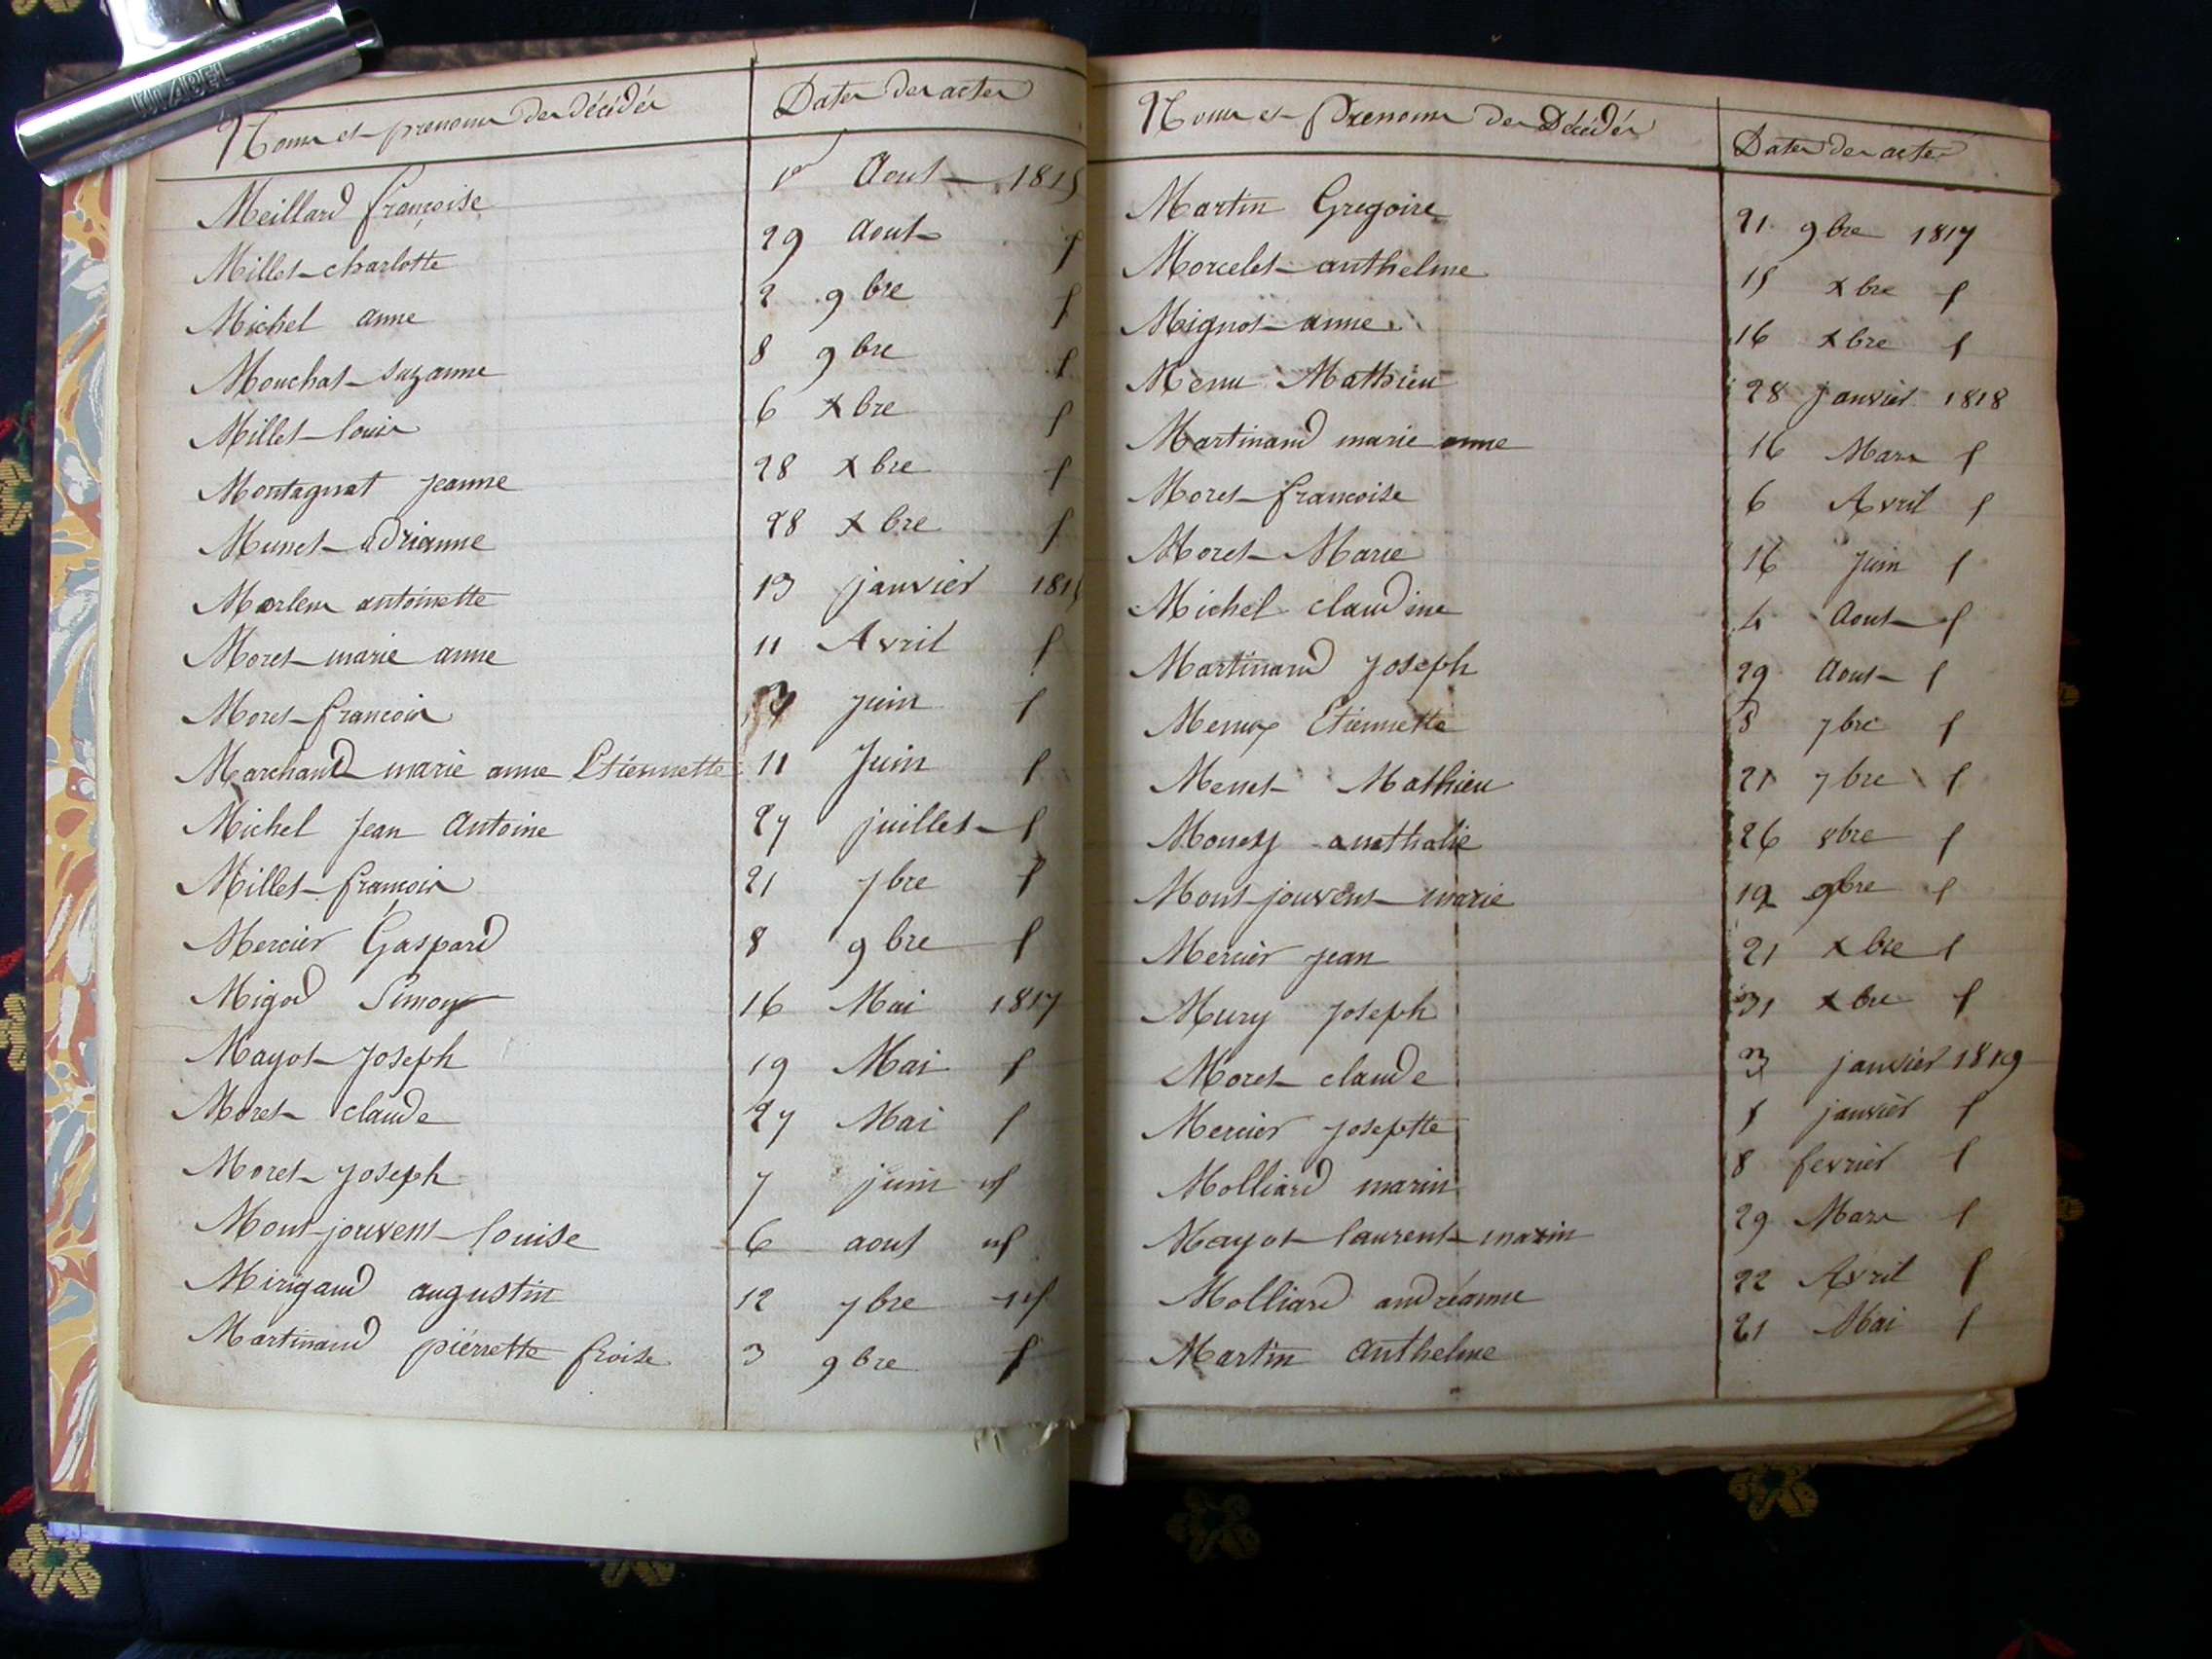 Noms et prenoms des décédés Dates des actes
Meillard françoise 1er Aout 1815
Millet charlotte 29 Aout f
Michel anne 2 9bre f
Mouchat suzanne 8 9bre f
Millet louis 6 xbre f
Montagnat jeanne 28 xbre f
Munet adrianne 28 xbre f
antoinette 13 janvier
Moret marie anne 11 Avril f
Moret francois juin f
Marchand marie anne Etiennette 11 Juin f
Michel Jean Antoine 27 juillet f
Millet francois 21 7bre f
Mercier Gaspard 8 9bre f
Migod Simon 16 Mai 1817
Mayot Joseph 19 Mai f
Moret claude 27 Mai f
Moret joseph 7 juin f
Mont-jouvent louise 6 aout f
Mirigaud augustin 12 7bre f
Martinand pierrette froise 3 9bre f
Noms et Prenoms des Décédés Dates des actes
Martin Gregoire 21 9bre 1817
Morcelet anthelme 15 xbre f
Mignot anne 16 xbre f
Menu Mathieu 28 janvier 1818
Martinand marie anne 16 Mars f
Moret francoise 6 Avril f
Moret Marie 16 Juin f
Michel claudine 4 Aout f
Martinand joseph 29 Aout f
Etiennette 8 7bre f
Menet Mathieu 21 7bre f
26 8bre f
Mont-jouvent marie 19 9bre f
Mercier jean 21 xbre f
Mury joseph 31 xbre f
Moret claude 3 janvier 1819
Mercier josephte janvier f
Molliard marin 8 fevrier f
Mayot laurent marin 29 Mars f
Molliard andréanne 22 Avril f
Martin Anthelme 21 Mai f